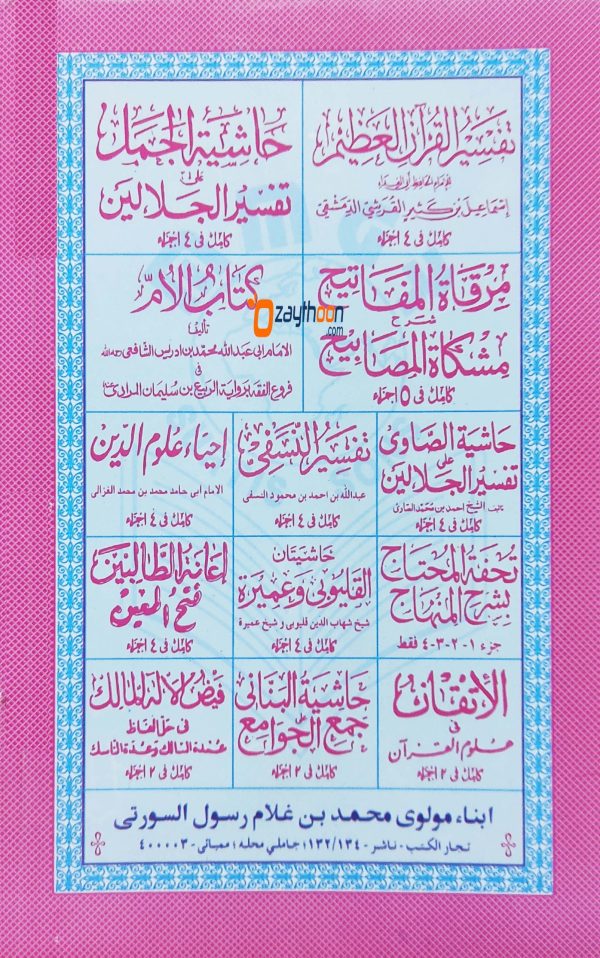 تفسير القرآن العظيم
للامام الحافظ أبي الفداء
اسماعيل بن كثير القرشي الدمشقي
كامل في ٤ اجزاء
حاشية الجمل
على
تفسير الجلالين
كامل في ٤ اجزاء
مرقاة المفاتيح
شرح
مشكاة المصابيح
كامل في ٥ اجزاء
كتاب الأم
تأليف
الامام ابي عبدالله محمد بن ادريس الشافعي رحمه الله
في
فروع الفقه برواية الربيع بن سليمان المرادي
Ozaythoon
.com
حاشية الصاوى
على
تفسير الجلالين
الشيخ احمد بن محمد الصاوى
كامل في ٤ اجزاء
تفسير النسفي
عبدالله بن احمد بن محمود النسفى
كامل في ٤ اجزاء
إحياء علوم الدين
الامام أبى حامد محمد بن محمد الغزالى
كامل في ٤ اجزاء
تحفة المحتاج
بشرح المنهاج
جزء ١-٢-٣-٤ فقط
حاشيتان
القليوبى وعميرة
شيخ شهاب الدين قليوبى و شيخ عميرة
كامل في ٤ اجزاء
إعانة الطالبين
فتح المعين
كامل في ٤ اجزاء
الإتقان
فى
علوم القرآن
كامل في ٢ اجزاء
حاشية البناني
على
جمع الجوامع
كامل في ٢ اجزاء
فيض الإله المالك
فى حل الفاظ
عمدة السالك وعدة الناسك
كامل في ٢ اجزاء
ابناء مولوى محمد بن غلام رسول السورتى
تجار الكتب - ناشر - ١٣٢/١٣٤؛ جاملي محله؛ ممبائى - ٤٠٠٠٠٣